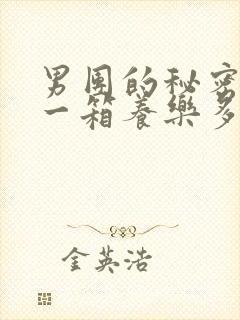 男团的秘密
一箱養樂多
金英浩